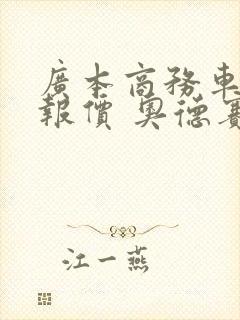 廣本商務車
報價 奧德賽
江一燕